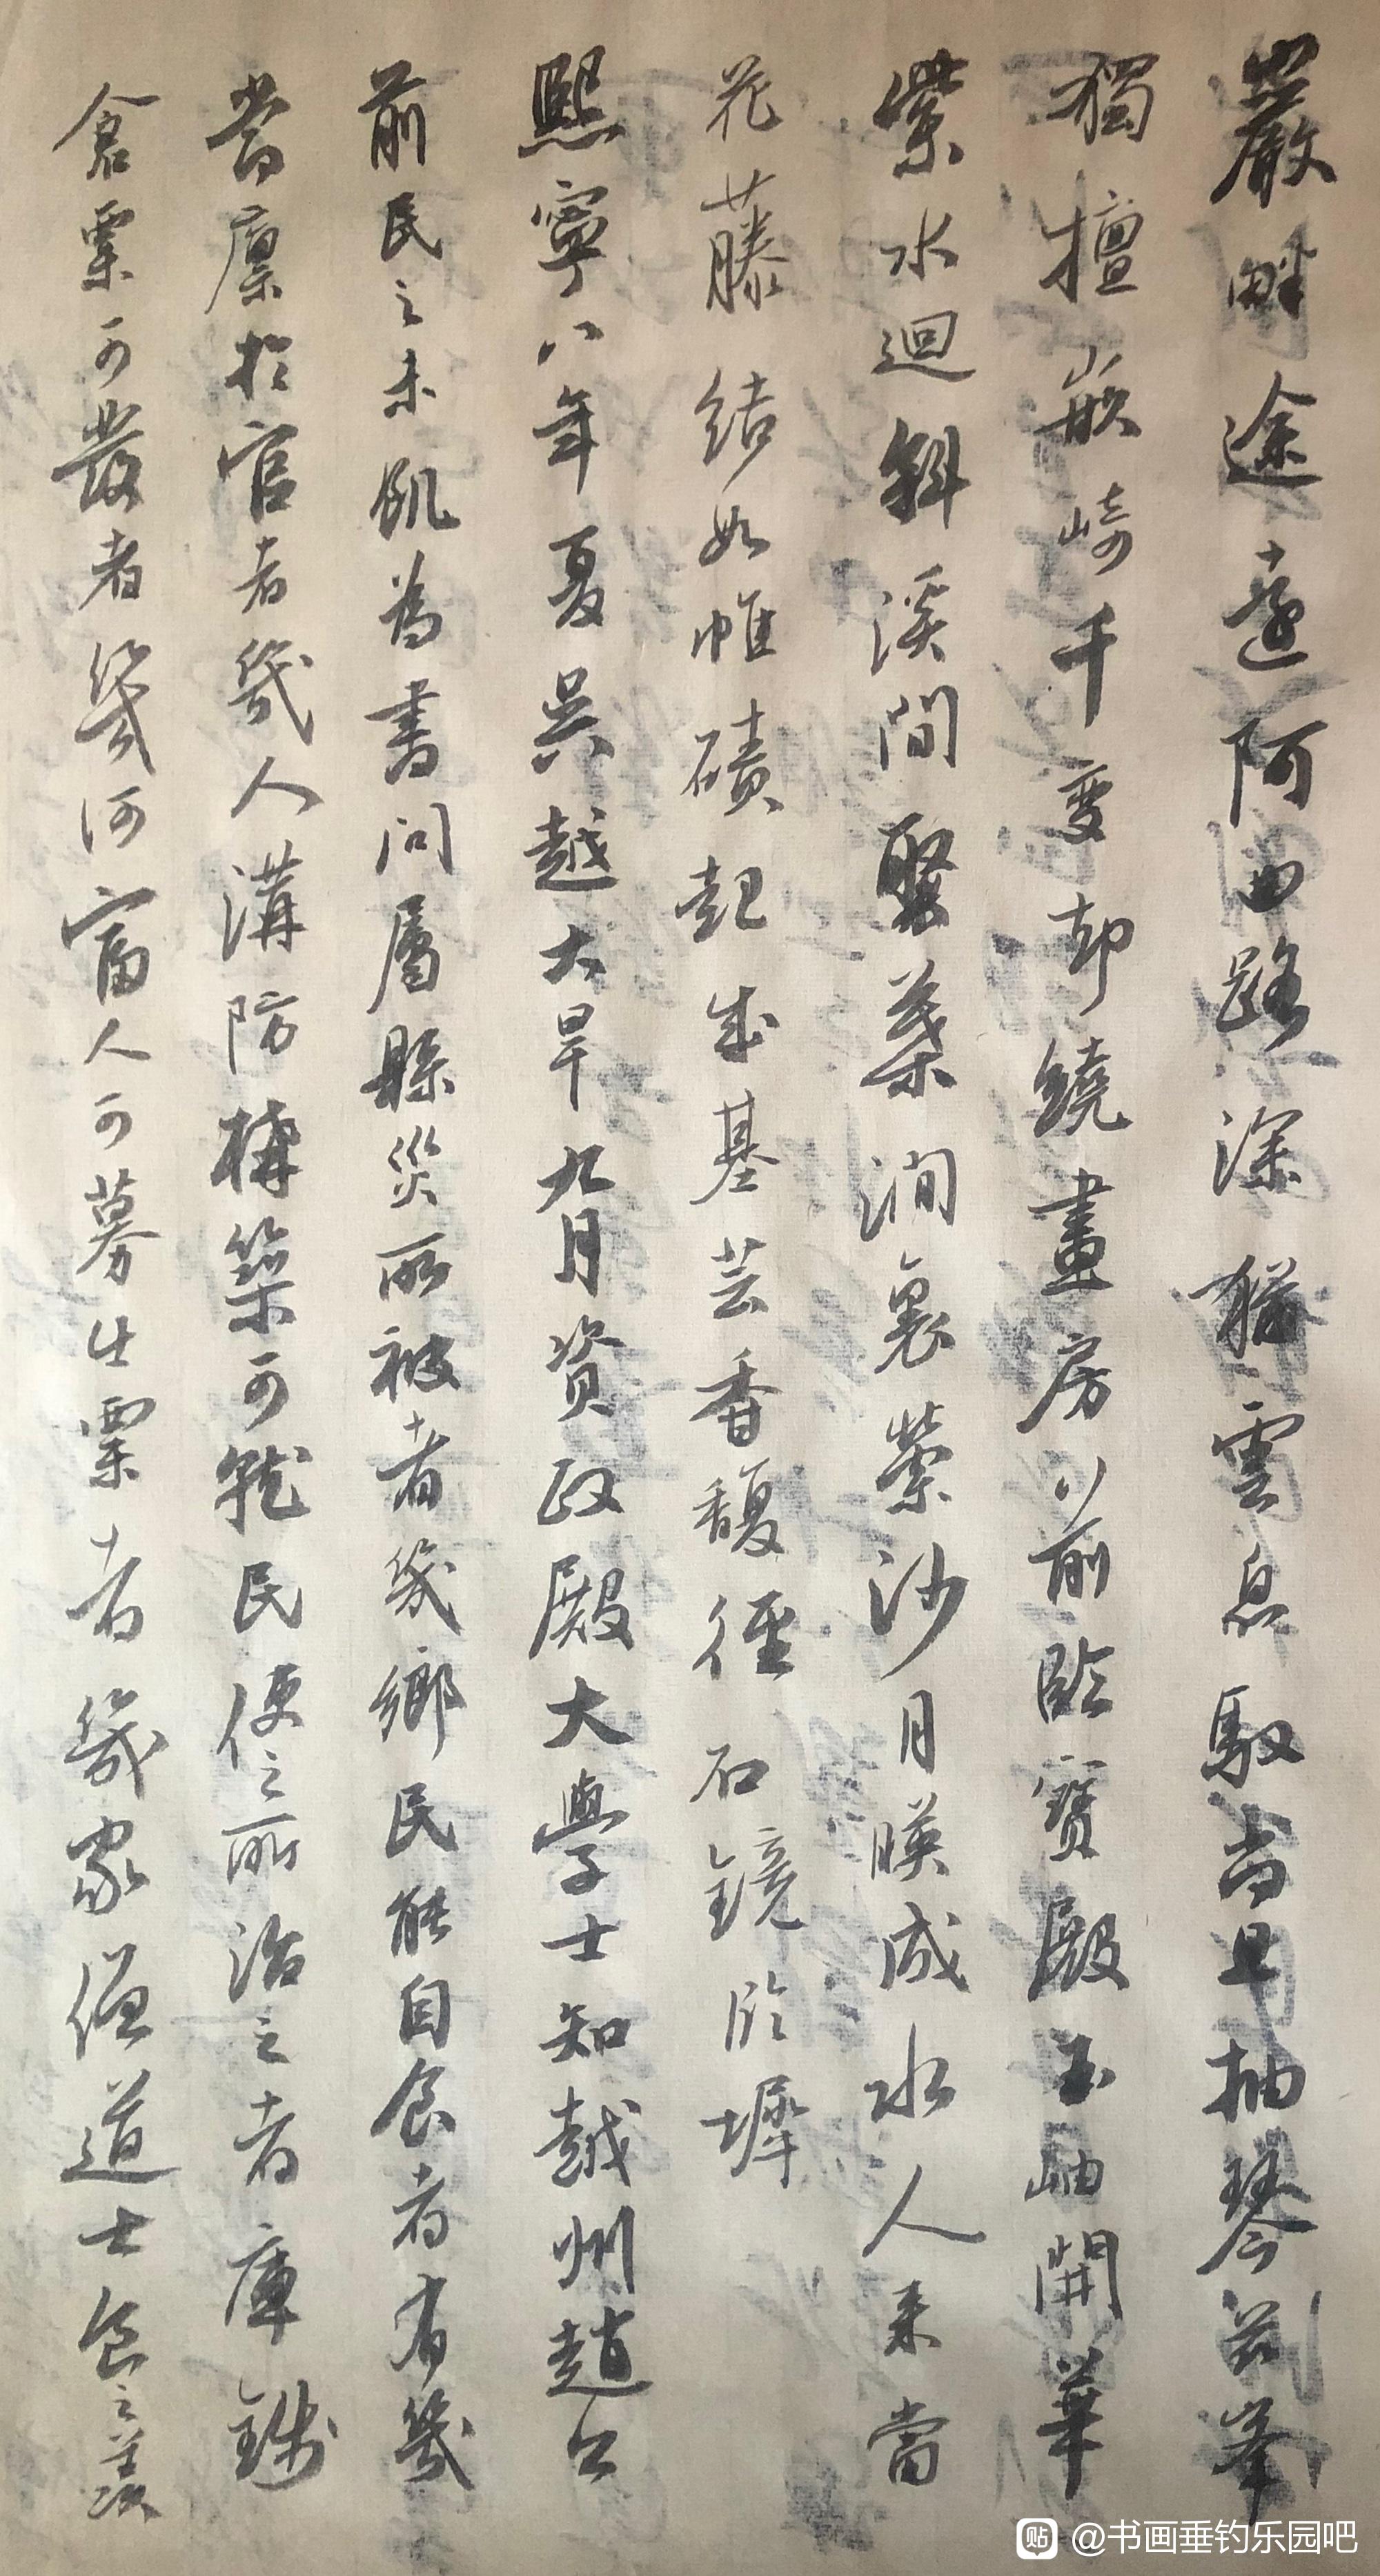 巖畔途遠阿曲路深猶雲息馭尚且抽琴茲峯
獨擅嵌崎千變却繞畫房前臨寶殿玉岫開華
紫水迴斜溪間聚葉澗裏縈沙月暎成水人來當
花藤結如帷磧起成基芸香馥徑石鏡臨墀
熙寧八年夏吳越大旱九月資政殿大學士知越州趙公
前民之未飢為書問屬縣災所被者幾鄉民能自食者有幾
當廩於官者幾人溝防構築可僦民使之所治之者庫錢
倉粟可發者幾何富人可募出粟者幾家僧道士食之羨
@书画垂钓乐园吧